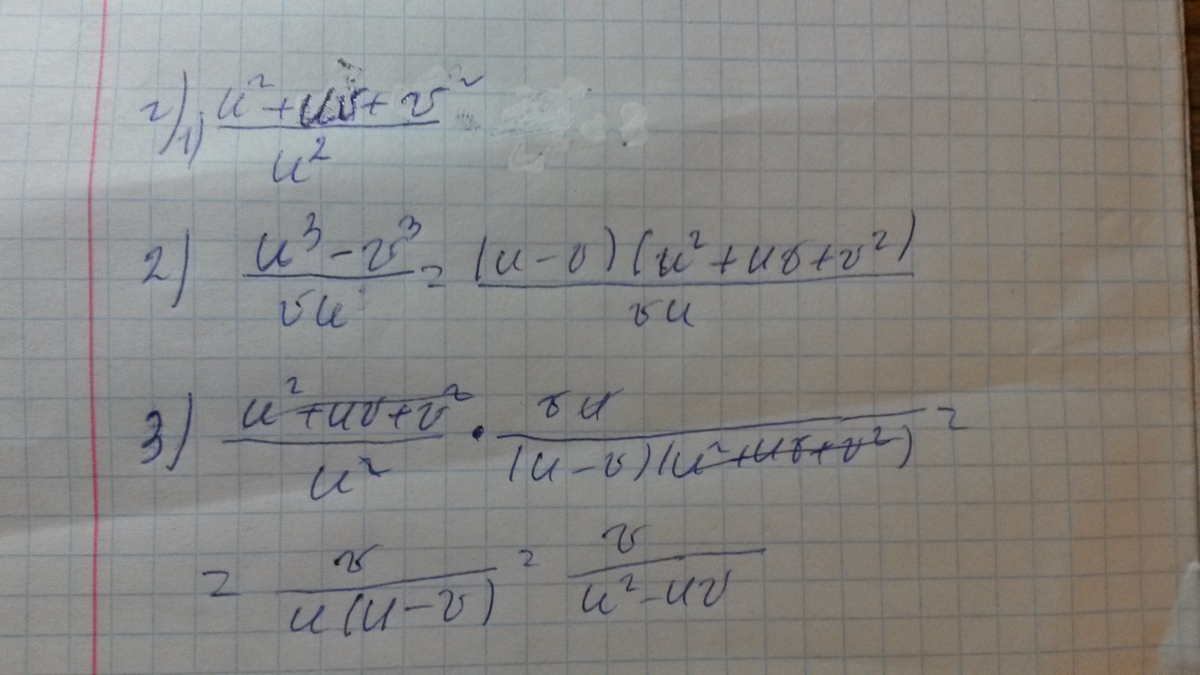 г) 1) (u² + uv + v²) / u²
2) (u³ - v³) / vu = ((u - v)(u² + uv + v²)) / vu
3) (u² + uv + v²) / u² · vu / ((u - v)(u² + uv + v²)) =
= v / (u(u - v)) = v / (u² - uv)